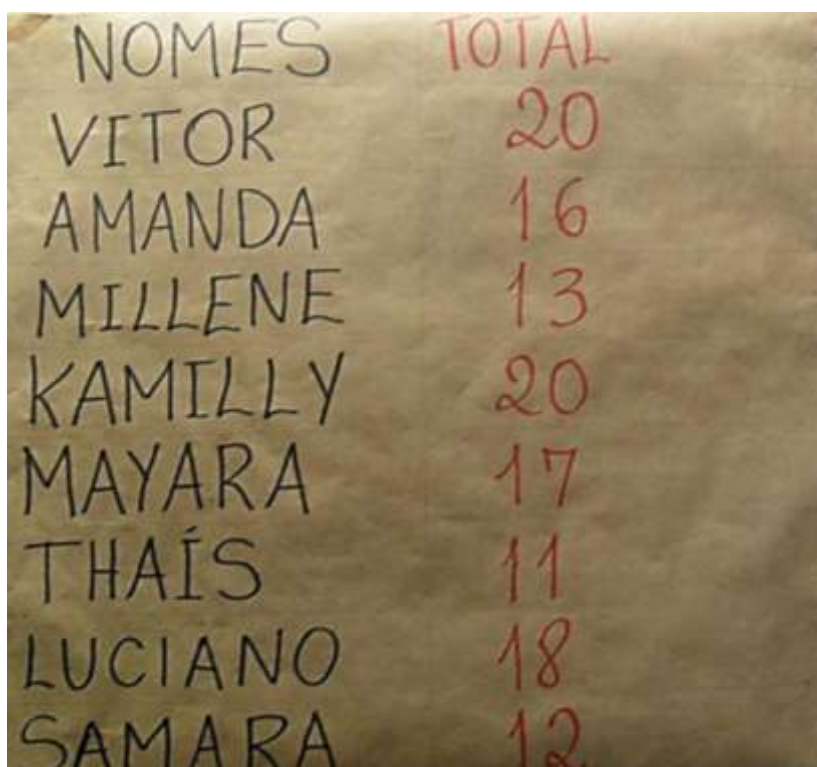 NOMES TOTAL
VITOR 20
AMANDA 16
MILLENE 13
KAMILLY 20
MAYARA 17
THAÍS 11
LUCIANO 18
SAMARA 12